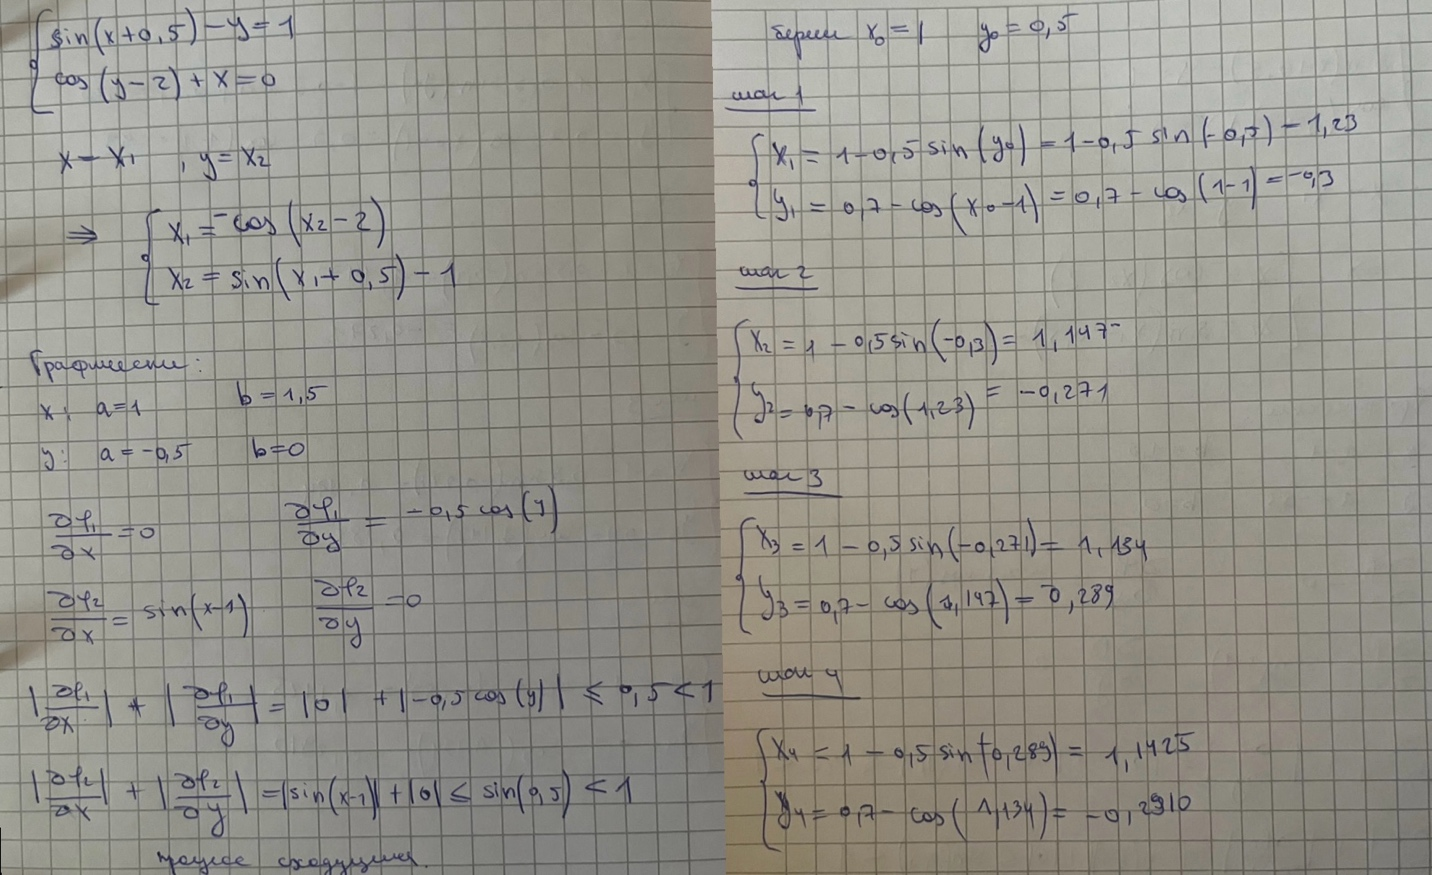 sin(x+0,5) - y = 1
cos(y-2) + x = 0
x - x₁ , y = x₂
⇒ x₁ = -cos(x₂-2)
x₂ = sin(x₁+0,5) - 1
Графически:
x: a=1 b=1,5
y: a=-0,5 b=0
∂φ₁/∂x = 0 ∂φ₁/∂y = -0,5 cos(y)
∂φ₂/∂x = sin(x-1) ∂φ₂/∂y = 0
|∂φ₁/∂x| + |∂φ₁/∂y| = |0| + |-0,5 cos(y)| ≤ 0,5 < 1
|∂φ₂/∂x| + |∂φ₂/∂y| = |sin(x-1)| + |0| ≤ sin(0,5) < 1
сходящийся.
берем x₀ = 1 y₀ = 0,5
шаг 1
x₁ = 1-0,5 sin(y₀) = 1-0,5 sin(-0,5) - 1,23
y₁ = 0,7 - cos(x₀-1) = 0,7 - cos(1-1) = -0,3
шаг 2
x₂ = 1 - 0,5 sin(-0,3) = 1,147
y₂ = 0,7 - cos(1,23) = -0,271
шаг 3
x₃ = 1 - 0,5 sin(-0,271) = 1,134
y₃ = 0,7 - cos(1,147) = -0,289
шаг 4
x₄ = 1 - 0,5 sin(-0,289) = 1,1425
y₄ = 0,7 - cos(1,134) = -0,2910